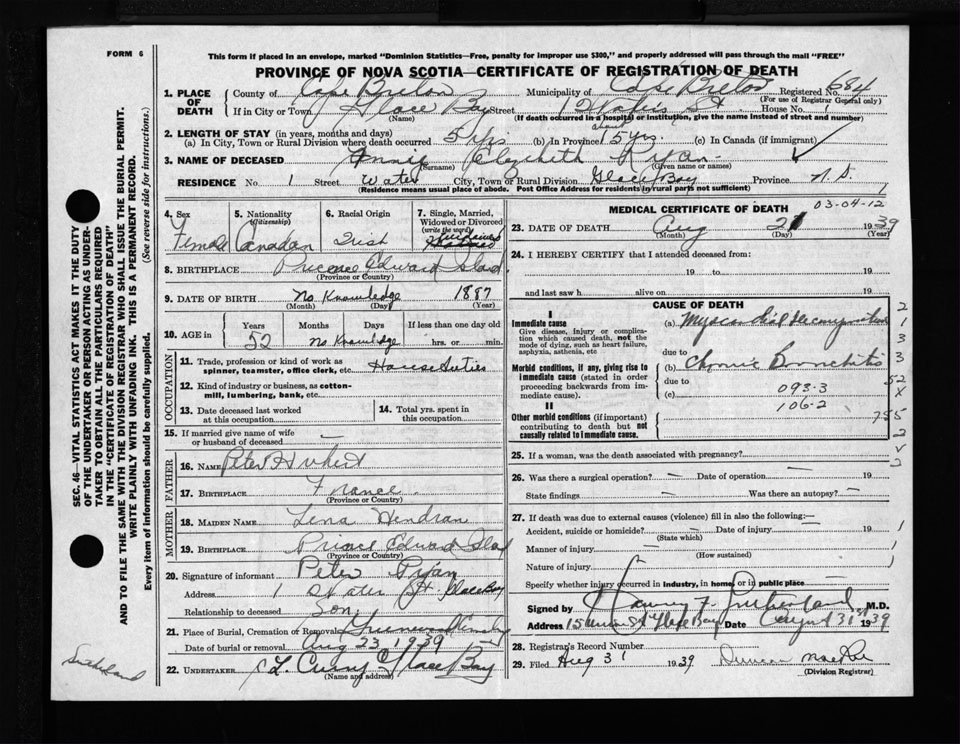 FORM 6
This form if placed in an envelope, marked "Dominion Statistics—Free, penalty for improper use $300," and properly addressed will pass through the mail "FREE"
PROVINCE OF NOVA SCOTIA—CERTIFICATE OF REGISTRATION OF DEATH
1. PLACE OF DEATH County of Cape Breton Municipality of Cape Breton Registered No. 684
(For use of Registrar General only)
If in City or Town Glace Bay Street 1 Water St House No. 1
(Name) (If death occurred in a hospital or institution, give the name instead of street and number)
2. LENGTH OF STAY (in years, months and days)
(a) In City, Town or Rural Division where death occurred 5 yrs (b) In Province 15 yrs. (c) In Canada (if immigrant)
3. NAME OF DECEASED Annie Elizabeth Ryan
(Surname) (Given name or names)
RESIDENCE No. 1 Street Water City, Town or Rural Division Glace Bay Province N.S.
(Residence means usual place of abode. Post Office Address for residents in rural parts not sufficient)
4. Sex Female
5. Nationality (Citizenship) Canadian
6. Racial Origin Irish
7. Single, Married, Widowed or Divorced (write the word)
8. BIRTHPLACE Prince Edward Island
(Province or Country)
9. DATE OF BIRTH No Knowledge 1887
(Month) (Day) (Year)
10. AGE in Years 52 Months No Days Knowledge If less than one day old hrs. or min.
OCCUPATION
11. Trade, profession or kind of work as spinner, teamster, office clerk, etc. House Duties
12. Kind of industry or business, as cotton-mill, lumbering, bank, etc.
13. Date deceased last worked at this occupation
14. Total yrs. spent in this occupation
15. If married give name of wife or husband of deceased —
FATHER
16. NAME Peter Hubert
17. BIRTHPLACE France
(Province or Country)
MOTHER
18. MAIDEN NAME Lena Hendran
19. BIRTHPLACE Prince Edward Island
(Province or Country)
20. Signature of informant Peter Ryan
Address 1 Water St Glace Bay
Relationship to deceased Son
21. Place of Burial, Cremation or Removal Greenwood
Date of burial or removal Aug 23 1939
22. UNDERTAKER Curry Glace Bay
(Name and address)
MEDICAL CERTIFICATE OF DEATH 03-04-12
23. DATE OF DEATH Aug 21 1939
(Month) (Day) (Year)
24. I HEREBY CERTIFY that I attended deceased from:
19 to 19
and last saw h alive on 19
CAUSE OF DEATH
I
Immediate cause
Give disease, injury or complication which caused death, not the mode of dying, such as heart failure, asphyxia, asthenia, etc
(a) Myocardial
due to
Morbid conditions, if any, giving rise to immediate cause (stated in order proceeding backwards from immediate cause).
(b) Chronic Bronchitis
due to
(c) 093-3
106-2
II
Other morbid conditions (if important) contributing to death but not causally related to immediate cause.
25. If a woman, was the death associated with pregnancy?
26. Was there a surgical operation? — Date of operation — 19
State findings — Was there an autopsy? —
27. If death was due to external causes (violence) fill in also the following:—
Accident, suicide or homicide? Date of injury 19
(State which)
Manner of injury
(How sustained)
Nature of injury
Specify whether injury occurred in industry, in home, or in public place
Signed by Harvey F. Sutherland M.D.
Address Glace Bay Date August 31st 1939
28. Registrar's Record Number
29. Filed Aug 31 1939 Duncan
(Division Registrar)
SEC. 46—VITAL STATISTICS ACT MAKES IT THE DUTY
OF THE UNDERTAKER OR PERSON ACTING AS UNDER-
TAKER TO OBTAIN ALL THE PARTICULARS REQUIRED
IN THE "CERTIFICATE OF REGISTRATION OF DEATH"
AND TO FILE THE SAME WITH THE DIVISION REGISTRAR WHO SHALL ISSUE THE BURIAL PERMIT.
WRITE PLAINLY WITH UNFADING INK. THIS IS A PERMANENT RECORD.
Every item of information should be carefully supplied. (See reverse side for instructions.)